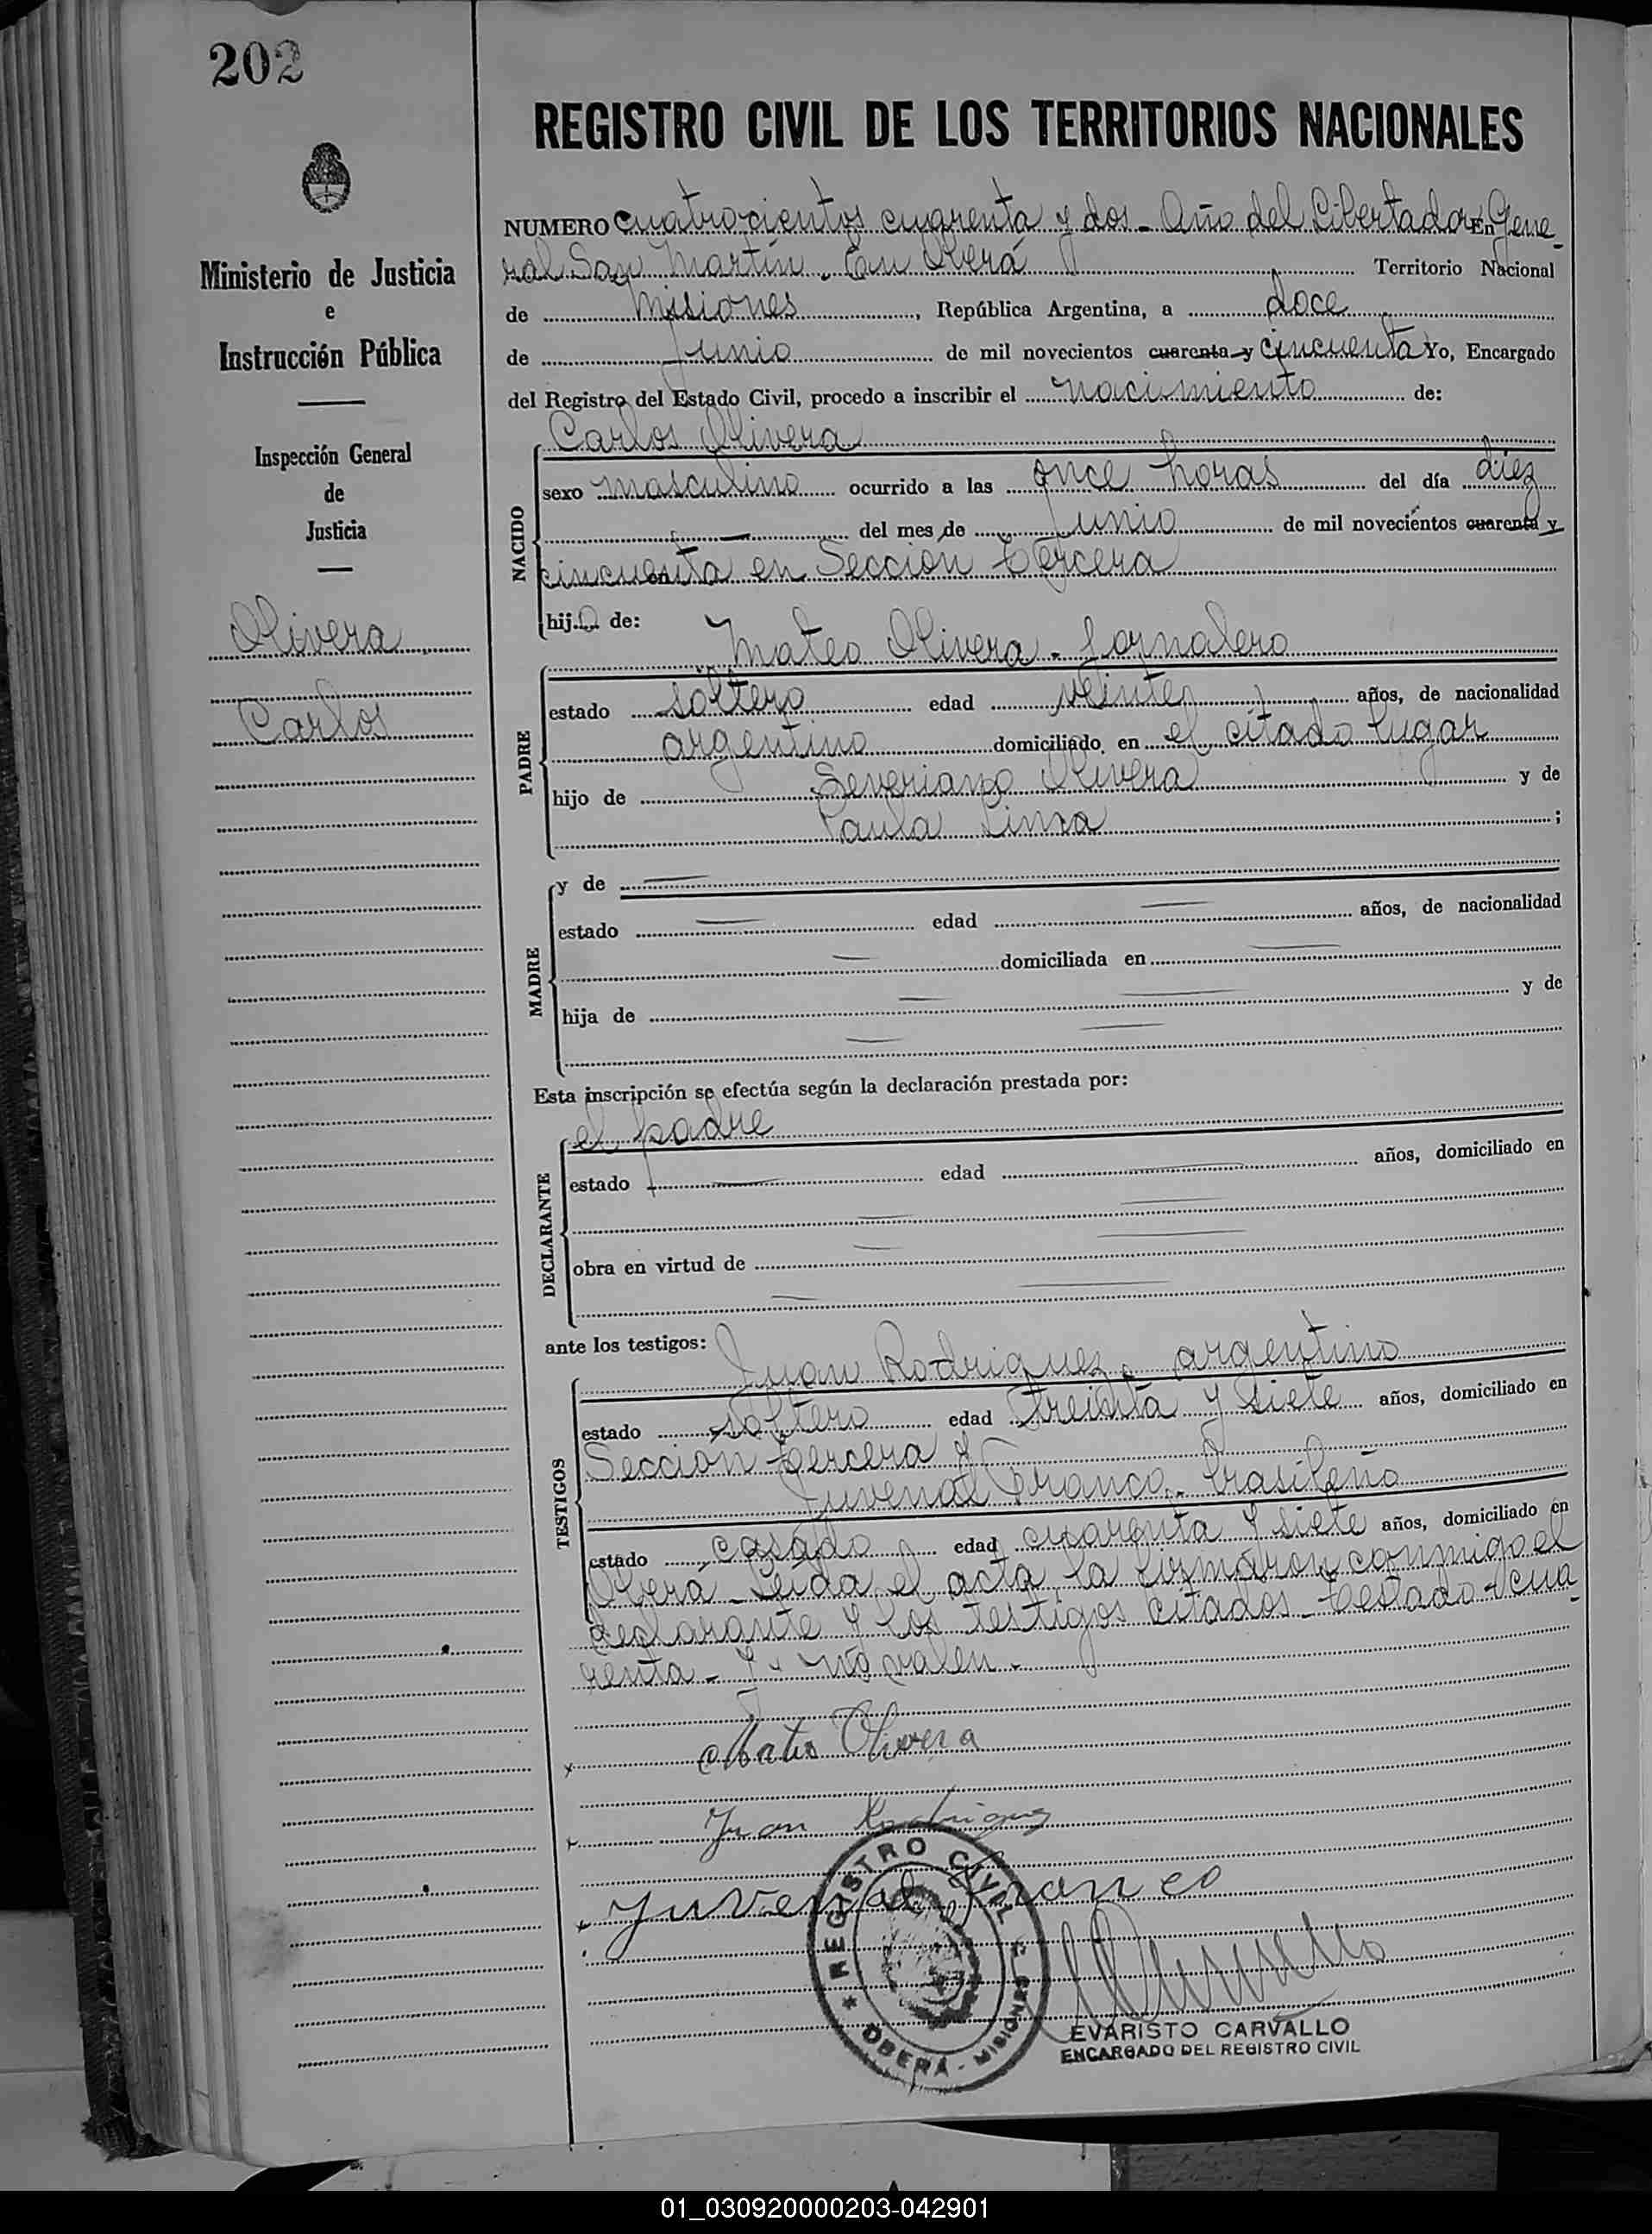 202
REGISTRO CIVIL DE LOS TERRITORIOS NACIONALES
Ministerio de Justicia
e
Instrucción Pública
Inspección General
de
Justicia
Olivera
Carlos
NUMERO cuatrocientos cuarenta y dos - Año del Libertador En Gene
ral San Martín. En Oberá Territorio Nacional
de Misiones, República Argentina, a doce
de Junio de mil novecientos cuarenta y cincuenta Yo, Encargado
del Registro del Estado Civil, procedo a inscribir el nacimiento de:
NACIDO
Carlos Olivera
sexo masculino ocurrido a las once horas del día diez
del mes de Junio de mil novecientos cuarenta y
cincuenta en Sección tercera
hijo de:
PADRE
Mateo Olivera - Jornalero
estado soltero edad veinte años, de nacionalidad
argentino domiciliado en el citado lugar
hijo de Severiano Olivera y de
Paula Lima;
MADRE
y de
estado edad años, de nacionalidad
domiciliada en
hija de y de
Esta inscripción se efectúa según la declaración prestada por:
DECLARANTE
el padre
estado edad años, domiciliado en
obra en virtud de
ante los testigos:
TESTIGOS
Juan Rodriguez, argentino
estado soltero edad treinta y siete años, domiciliado en
Sección tercera y
Juvenal Franco - brasileño
estado casado edad cuarenta y siete años, domiciliado en
Oberá - Leída el acta, la firmaron conmigo el
declarante y los testigos citados - testado - cua
renta - y - no valen -
Mateo Olivera
Juan Rodriguez
Juvenal Franco
REGISTRO CIVIL
OBERÁ - MISIONES
EVARISTO CARVALLO
ENCARGADO DEL REGISTRO CIVIL
01_030920000203-042901